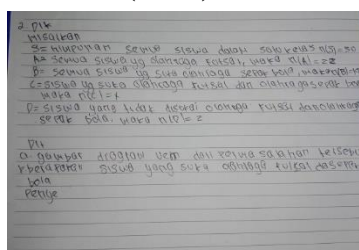 2. Dik
Misalkan
S = himpunan semua siswa dalam satu kelas n(S) = 30
A = semua siswa yg olahraga futsal, maka n(A) = 22
B = semua siswa yg suka olahraga sepak bola, maka n(B) =
C = siswa yg suka olahraga futsal dan olahraga sepak bo
maka n(C) = x
D = siswa yang tidak disukai olahraga futsal dan olahraga
sepak bola. maka n(D) = 2
Dit
a. gambar diagram ven dari
siswa yang suka olahraga futsal dan sepak
bola